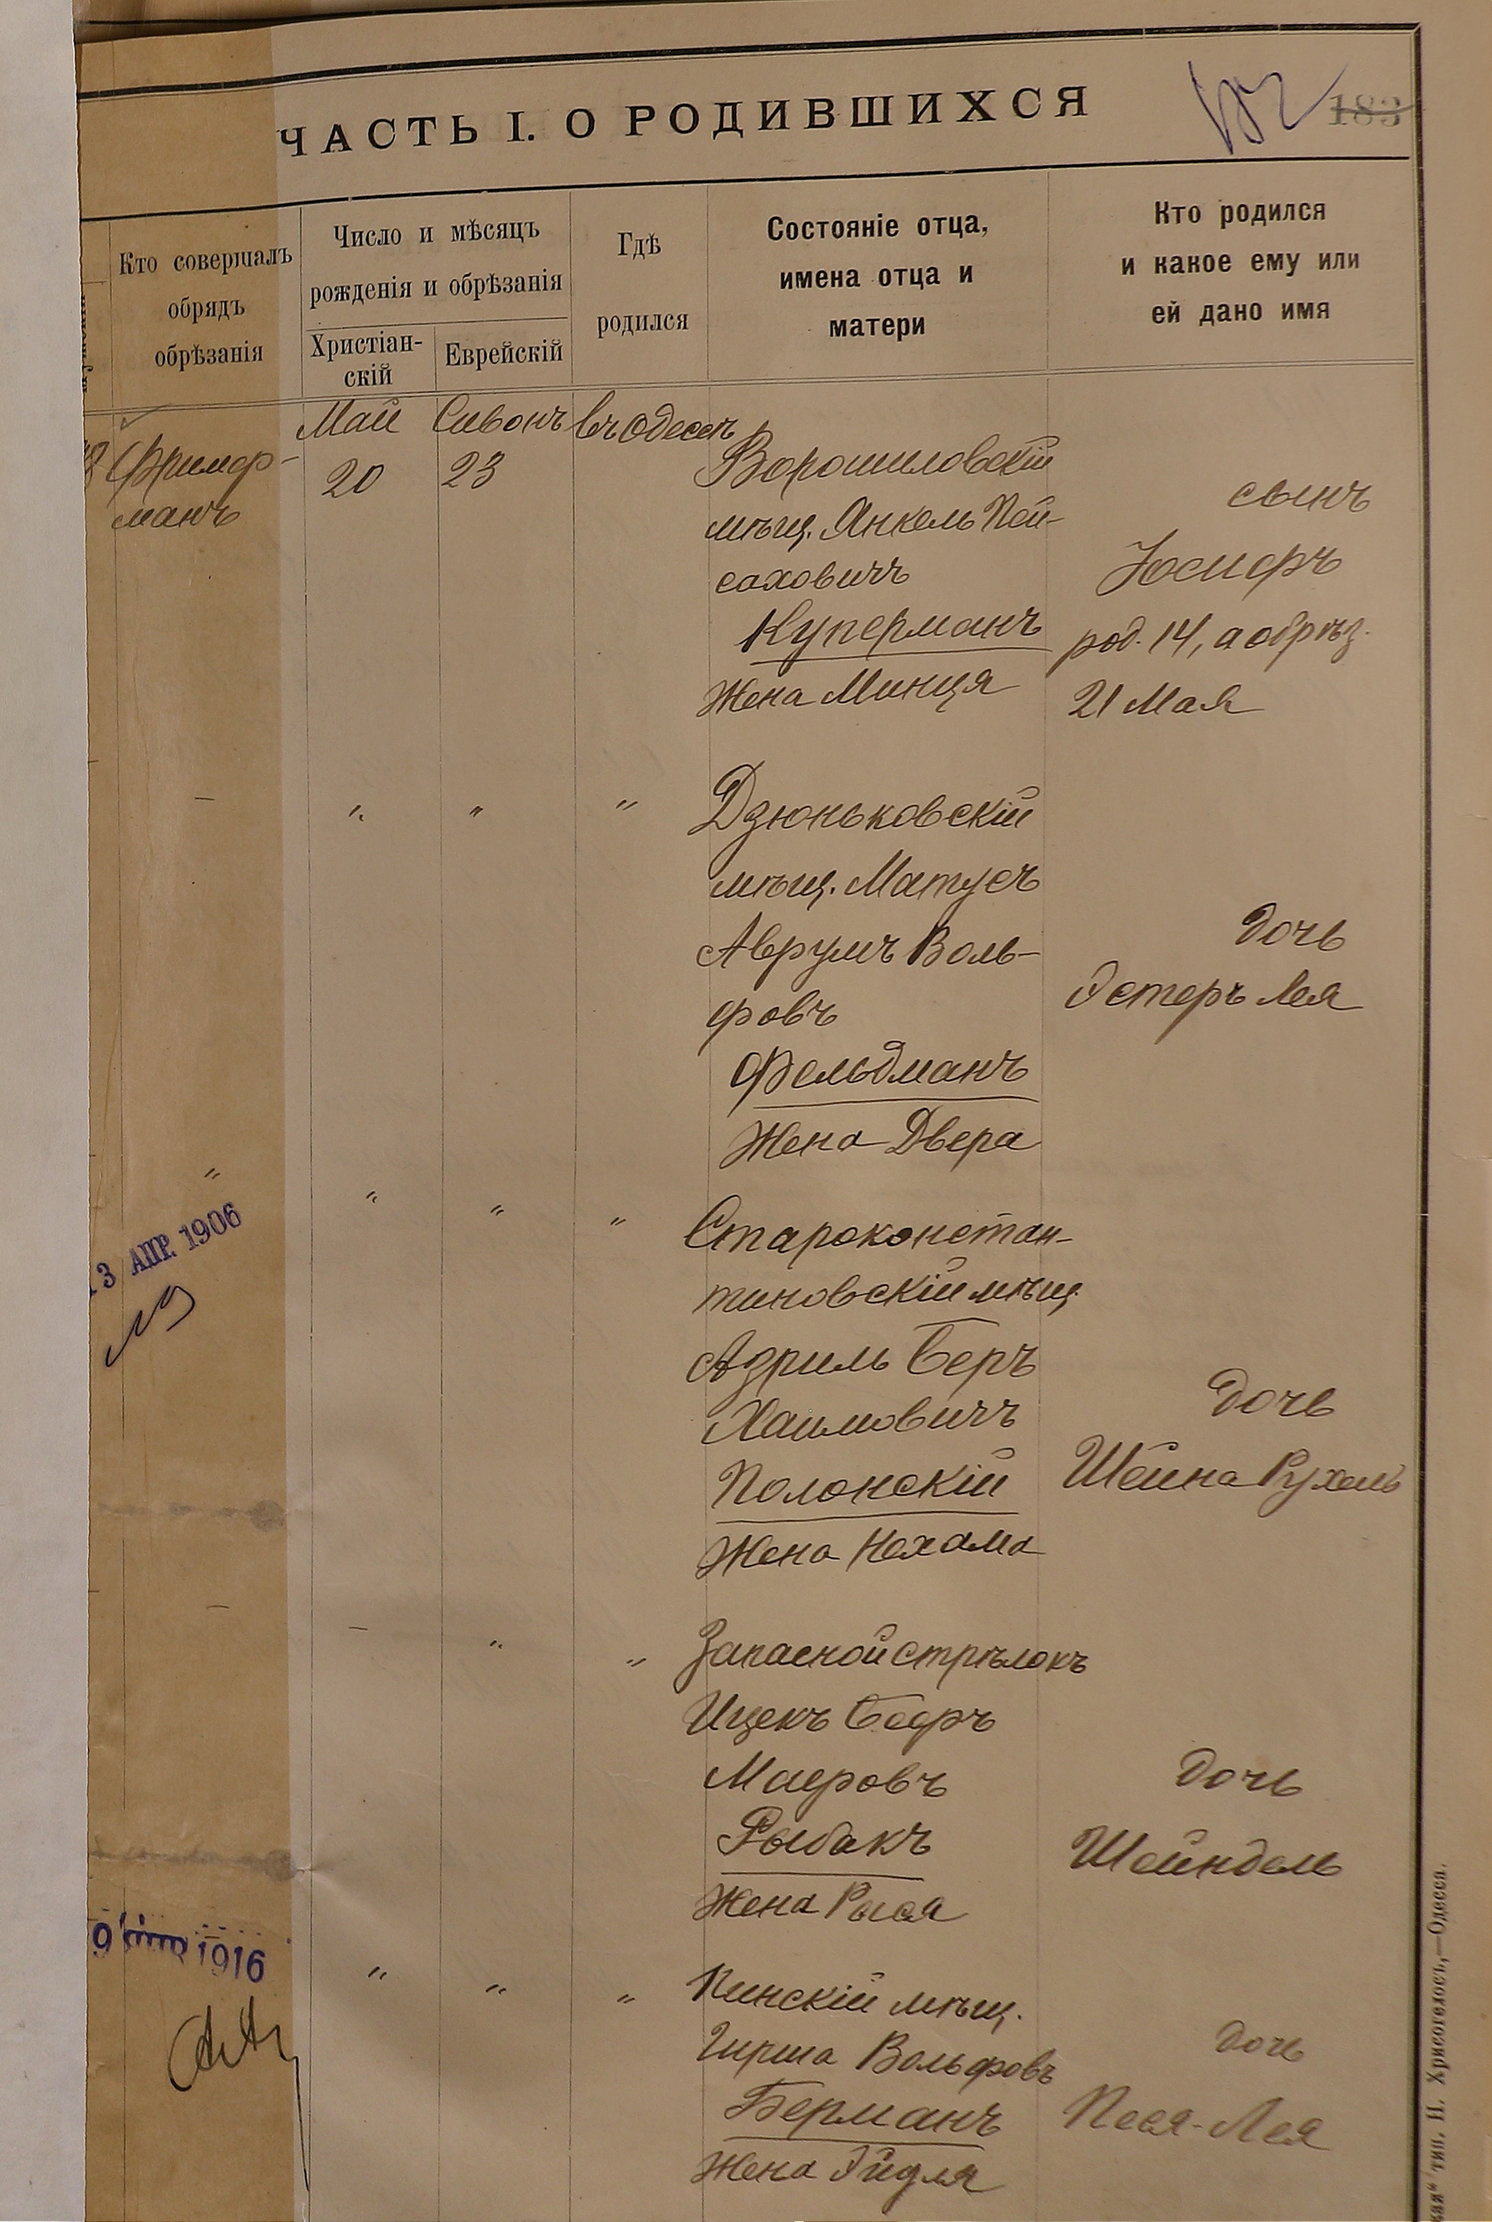 ЧАСТЬ I. О РОДИВШИХСЯ
183
Кто совершалъ
обрядъ
обрѣзанія
Число и мѣсяцъ
рожденія и обрѣзанія
Христіан-
скій
Еврейскій
Гдѣ
родился
Состояніе отца,
имена отца и
матери
Кто родился
и какое ему или
ей дано имя
Май Сивонъ въ Одессѣ
20 23
манъ
Ворошиловскій
мѣщ. Янкель Пей-
саховичъ
Куперманъ
Жена Минця
сынъ
Іосифъ
род. 14, а обрѣз.
21 Мая
— " " "
Дзюньковскій
мѣщ. Матусъ
Аврумъ Воль-
фовъ
Фельдманъ
Жена Двера
дочь
Эстеръ Лея
" " " "
3 АПР. 1906
Староконстан-
тиновскій мѣщ.
Азриль Беръ
Хаимовичъ
Полонскій
Жена Нехама
дочь
Шейна Рухель
— — " "
Запасной стрѣлокъ
Ицекъ Беръ
Маеровъ
Рыбакъ
Жена Рыся
дочь
Шейндель
9 1916
" " "
Пинскій мѣщ.
Гирша Вольфовъ
Берманъ
Жена Эйдля
дочь
Песя-Лея
тип. И. Хрисогелосъ,—Одесса.